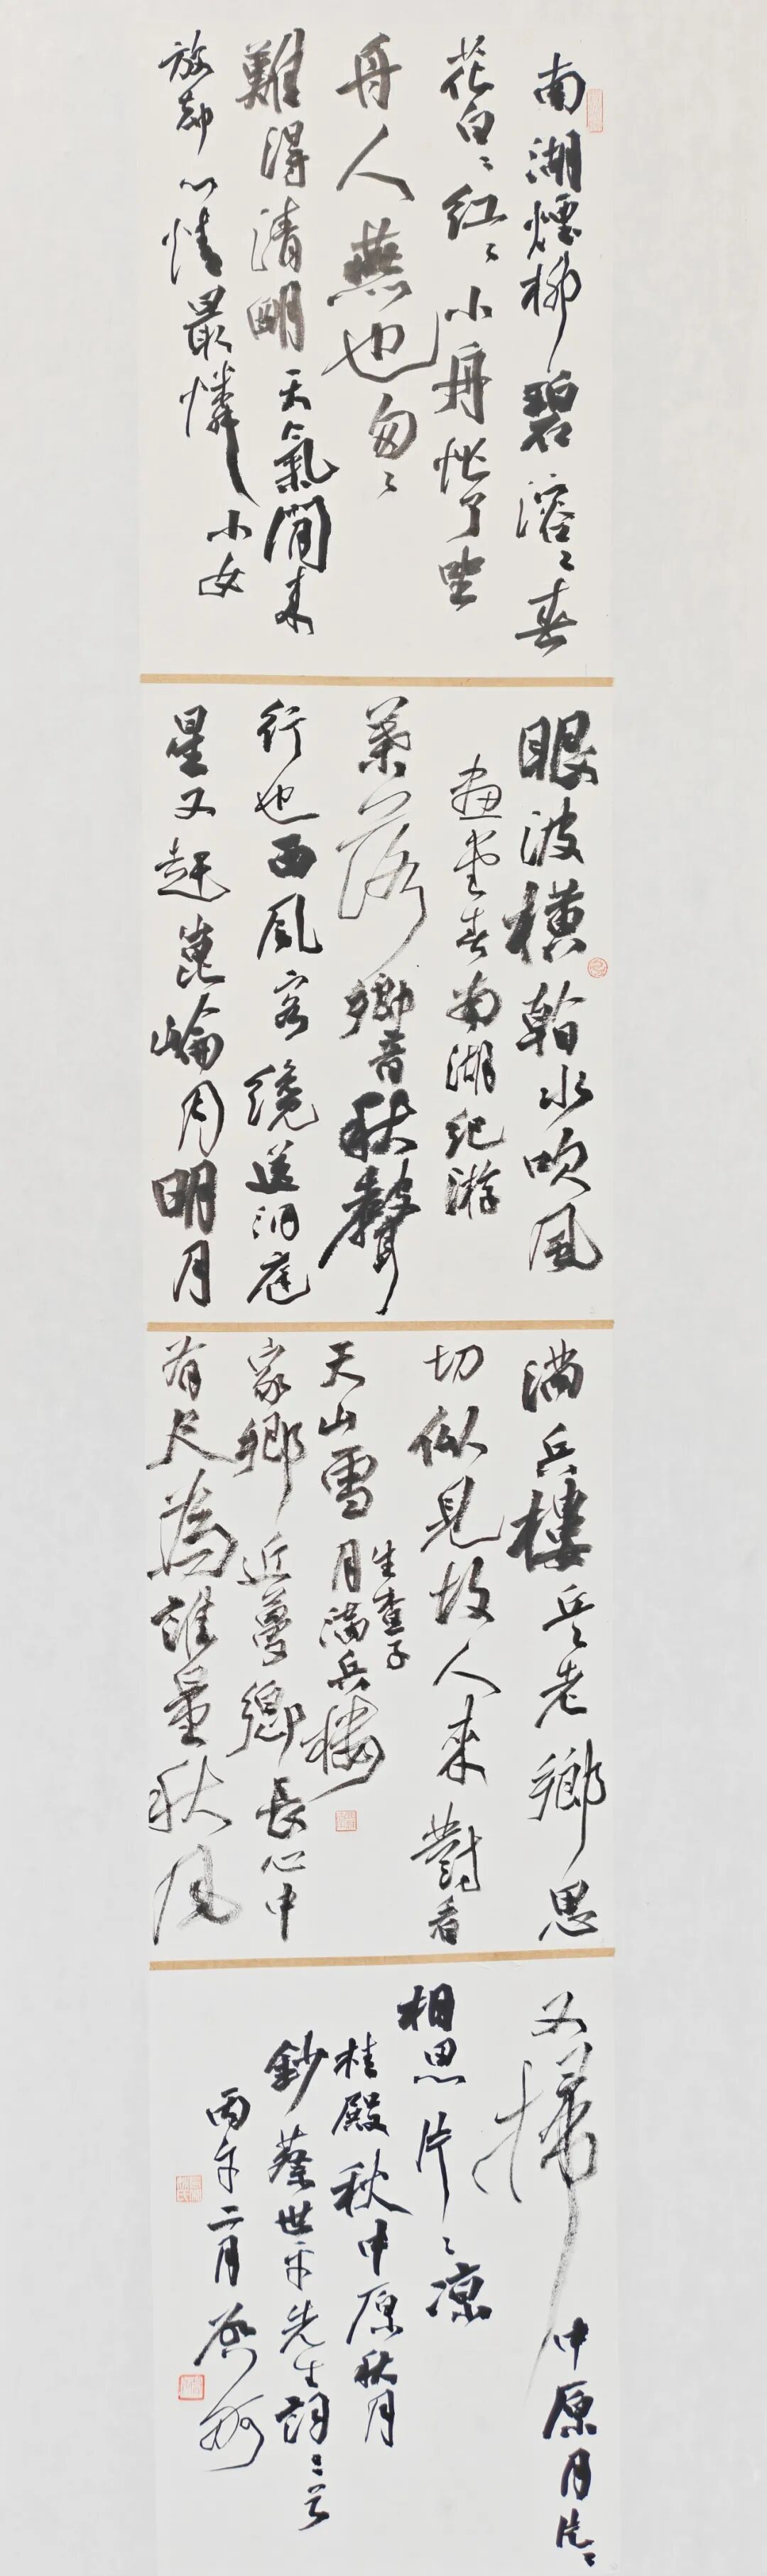 南湖煙柳碧溶溶春
花白白紅紅小舟恍了岸
舟人燕也匆匆
難得清明天氣閒來
放却心情最憐小女
眼波橫斡水吹風
畫堂春南湖紀游
葉落鄉音秋聲
行也西風客纔送洞庭
星又趕崑崙月明月
滿兵樓兵老鄉思
切似見故人來對看
天山雪生查子
月滿兵樓
家鄉近夢鄉長心中
有尺為誰量秋風
又掃中原月片片
相思片片涼
桂殿秋中原秋月
鈔蔡世平先生詞三首
丙午二月